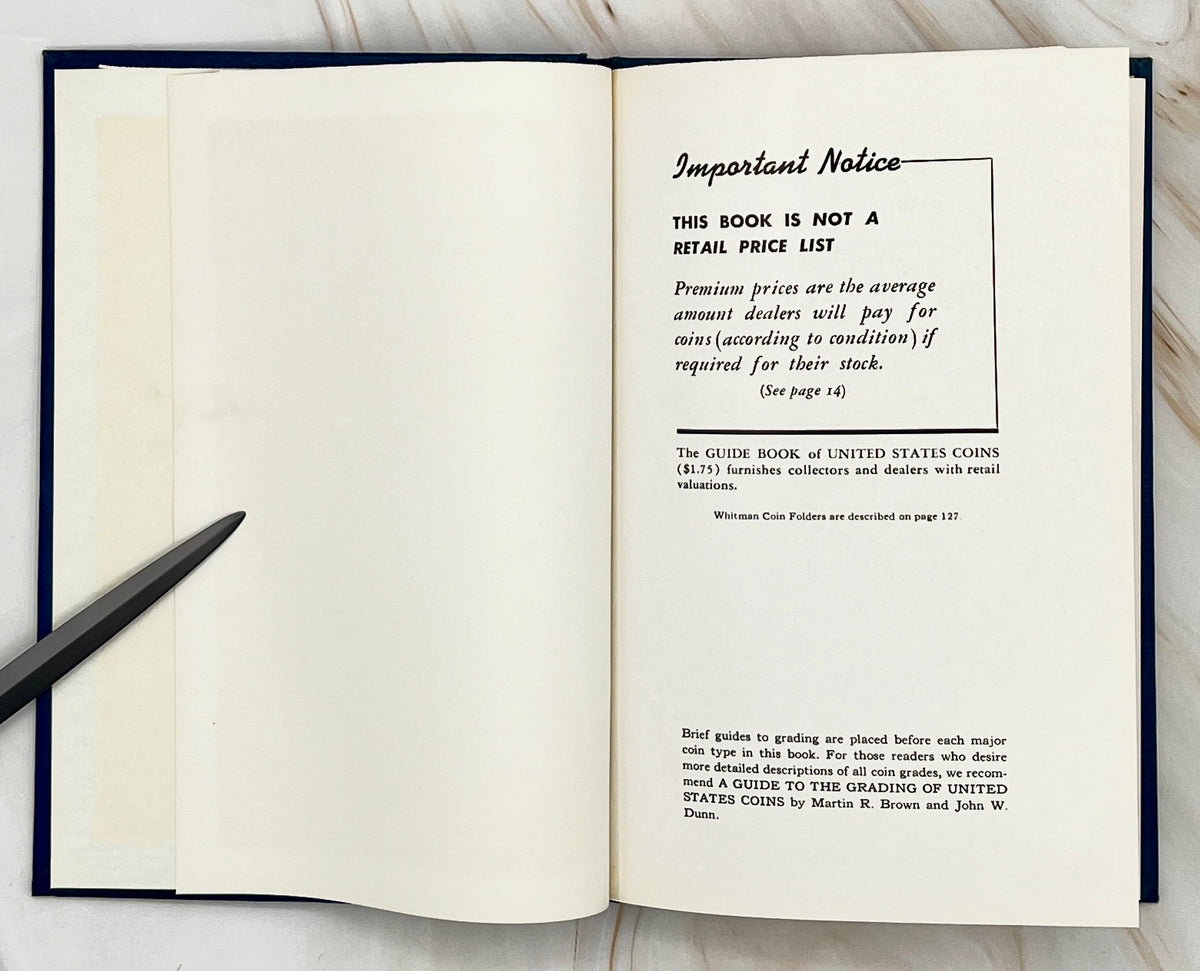 Important Notice
THIS BOOK IS NOT A
RETAIL PRICE LIST
Premium prices are the average
amount dealers will pay for
coins (according to condition) if
required for their stock.
(See page 14)
The GUIDE BOOK of UNITED STATES COINS
($1.75) furnishes collectors and dealers with retail
valuations.
Whitman Coin Folders are described on page 127.
Brief guides to grading are placed before each major
coin type in this book. For those readers who desire
more detailed descriptions of all coin grades, we recom-
mend A GUIDE TO THE GRADING OF UNITED
STATES COINS by Martin R. Brown and John W.
Dunn.